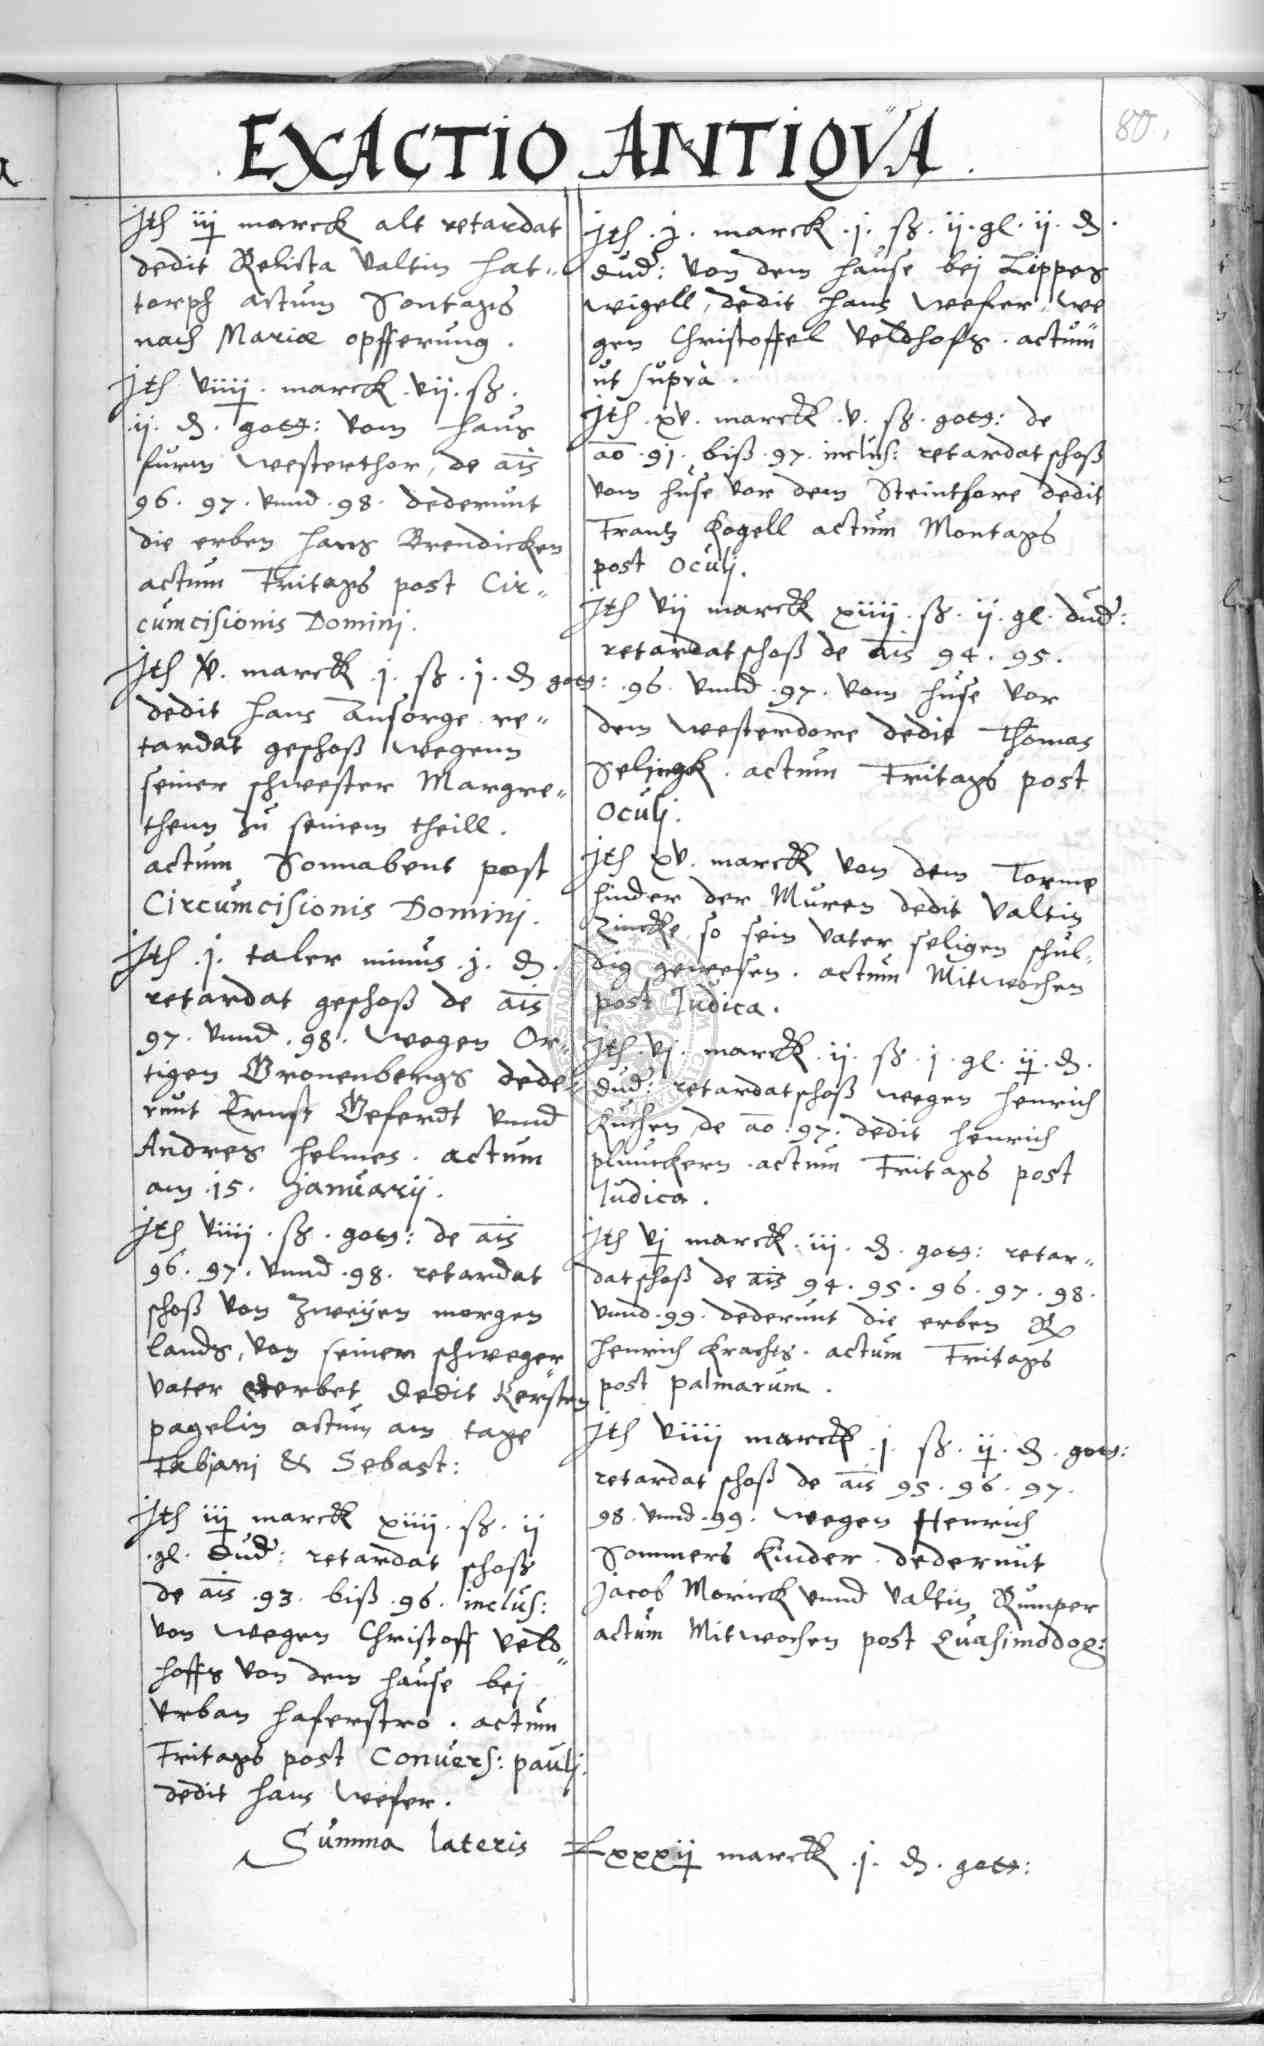 EXACTIO ANTIQVA
80.
Jth iij marck alt retardat
dedit Relicta Valtin Hat„
torph actum Sontags
nach Mariæ opfferung.
Jth viiij. marck. vij. ß.
ij. ₰. gottg: vom Haus
furm Westerthor, de aīs
96. 97. vnnd. 98. dederunt
die erben Hans Brendicken
actum Fritags post Cir„
cumcisionis Dominj.
Jth V. marck. j. ß. j. ₰ gottg:
dedit Hans Ansorge re„
tardat geschoß wegenn
seiner schwester Margre„
thenn zu seinem theill.
actum Sonnabent post
Circumcisionis Dominj.
Jth. j. taler minus. j. ₰.
retardat geschoß de aīs
97. vnnd. 98. wegen Or„
tigen Gronenbergs dede„
runt Ernst Geferdt vnnd
Andres Helmes. actum
am. 15. Januarij.
Jth viiij. ß. gottg: de aīs
96. 97. vnnd. 98. retardat
schoß von zweijen morgen
lands, von seinem schweger
vater ererbet dedit Kersten
pagelin actum am tage
Fabjanj & Sebast:
Jth iij marck xiiij. ß. ij
.gl. Dud: retardat schoß
de aīs. 93. biß. 96. inclus:
von wegen Christoff Veld„
hoffs von dem Hause bej
Vrban Haferstro. actum
Fritags post Convers: paulj.
dedit Hans Wefer.
Jth. j. marck. j. ß. ij. gl. ij. ₰.
Dud: von dem Hause bej Lippes
wigell, dedit Hans Wefer, we
gen Christoffel Veldhofs. actum
ut suprà.
Jth. xv. marck. v. ß. gottg: de
aō. 91. biß. 97. inclus: retardat schoß
vom Huse vor dem Steinthore dedit
Frantz Kogell actum Montags
post Oculj.
Jth vij marck xiiij. ß. ij. gl. Dud:
retardat schoß de aīs 94. 95.
.96. vnnd. 97. vom Huse vor
dem Westerdore dedit Thomas
Selingk. actum Fritags post
Oculj.
Jth xv. marck von dem Torme
hinder der Muren dedit Valtin
Zincke, so sein vater seligen schul„
dig gewesen. actum Mitwochen
post Judica.
Jth. vj. marck. ij. ß. j. gl. ij. ₰.
Dud: retardat schoß wegen Henrich
Kuchen, de aō. 97. dedit Henrich
plunckern. actum Fritags post
Judica.
Jth vj marck. iij. ₰. gottg: retar„
dat schoß de aīs 94. 95. 96. 97. 98.
vnnd. 99. dederunt die erben
Henrich Krachts. actum Fritags
post palmarum.
Jth viiij marck. j. ß. ij. ₰. gottg:
retardat schoß de aīs 95. 96. 97.
98. vnnd. 99. wegen Henrich
Sommers Kinder. dederunt
Jacob Morick vnnd Valtin Rumper
actum Mitwochen post Quasimodog:
Summa lateris Lxxxij marck. j. ₰. gottg: